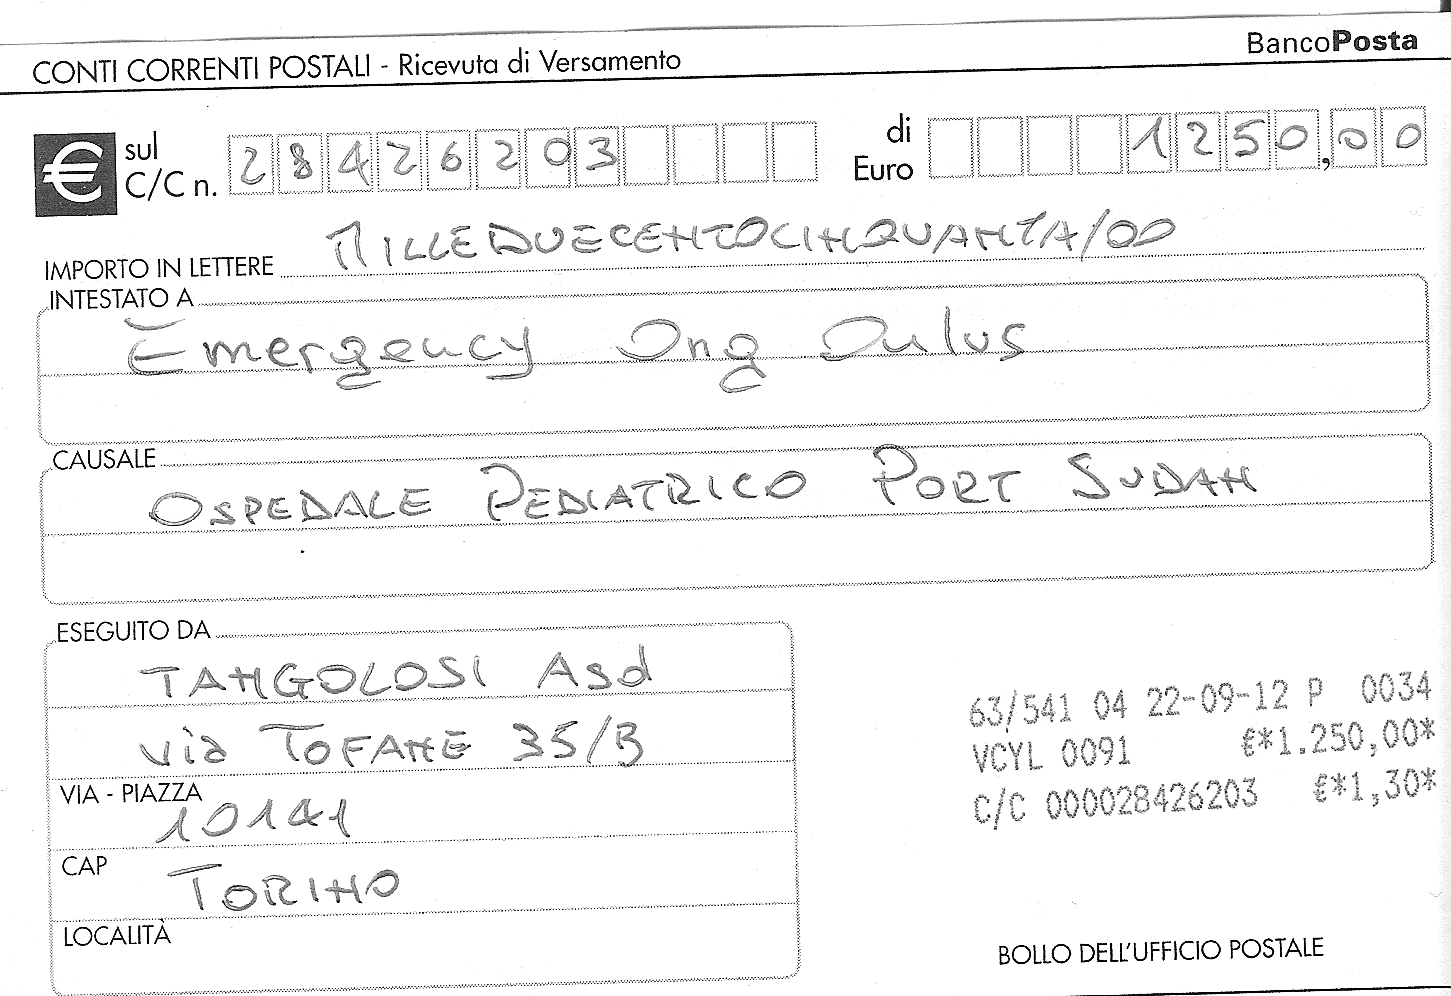 CONTI CORRENTI POSTALI - Ricevuta di Versamento BancoPosta
€ sul C/C n. 28426203 di Euro 1250,00
IMPORTO IN LETTERE MILLEDUECENTOCINQUANTA/00
INTESTATO A
Emergency Ong Onlus
CAUSALE
OSPEDALE PEDIATRICO PORT SUDAN
ESEGUITO DA
TANGOLOSI Asd
via TOFANE 35/B
VIA - PIAZZA
10141
CAP
TORINO
LOCALITÀ
63/541 04 22-09-12 P 0034
VCYL 0091 €*1.250,00*
C/C 000028426203 €*1,30*
BOLLO DELL'UFFICIO POSTALE